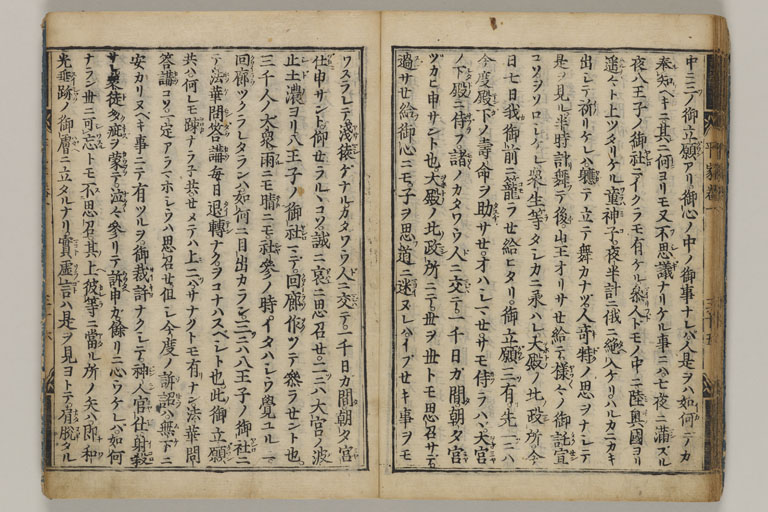 中三ノ御立願アリ御心ノ中ノ御事ナレハ人是ヲハ如何テカ
奉知ヘキニ其ニ何ヨリモ又不思議ナリケル事ニハ七夜ニ満スル
夜八王子ノ御社ニイクラモ有ケル参人トモノ中ニ陸奥國ヨリ
遥々ト上ツタリケル童神子夜半計ニ俄ニ絶入ケリハルカニカキ
出シテ祈リケレハ軈テ立テ舞カナツ人奇特ノ思ヲナシテ
是ヲ見ル半時計舞テ後山王オリサセ給テ様々ノ御託宣
コソヲソロシケレ衆生等タシカニ承ハレ大殿ノ北政所今
日七日我御前ニ籠ラセ給ヒタリ御立願三有先一ニハ
今度殿下ノ壽命ヲ助サセオハシマセサモ侍ラハ大宮
ノ下殿ニ侍フ諸ノカタワウ人ニ交テ一千日カ間朝夕宮
ツカヒ申サント也大殿ノ北政所ニテ世ヲ世トモ思召サテ
過サセ給御心ニモ子ヲ思道ニ迷ヌレハイブセキ事ヲモ
ワスラレテ浅猿ケナルカタワウ人ニ交テ一千日カ間朝夕宮
仕申サント仰セラルヽコソ誠ニ哀ニ思召セ二ニハ大宮ノ波
止土濃ヨリ八王子ノ御社マテ回廊作ツテ参ラセント也
三千人ノ大衆雨ニモ晴ニモ社参ノ時イタハシウ覺ユルニ
回廊ツクラレタランハ如何ニ目出カラン三ニハ八王子ノ御社ニ
テ法華問答講毎日退轉ナクヲコナハスヘシト也此御立願
共ハ何レモ疎ナラ子共セメテハ上二ハサナクトモ有ナン法華問
答講コソ一定アラマホシウハ思召セ但シ今度ノ訴訟ハ無下ニ
安カリヌヘキ事ニテ有ツルヲ御裁許ナクシテ神人宮仕射殺
サレ衆徒多疵ヲ蒙テ泣々参リテ訴申カ餘リニ心ウケレハ如何
ナラン世ニ可忘トモ不思召其上彼等ニ當ル所ノ矢ハ即和
光垂跡ノ御膚ニ立タルナリ實虚言ハ是ヲ見ヨトテ肩脱タル